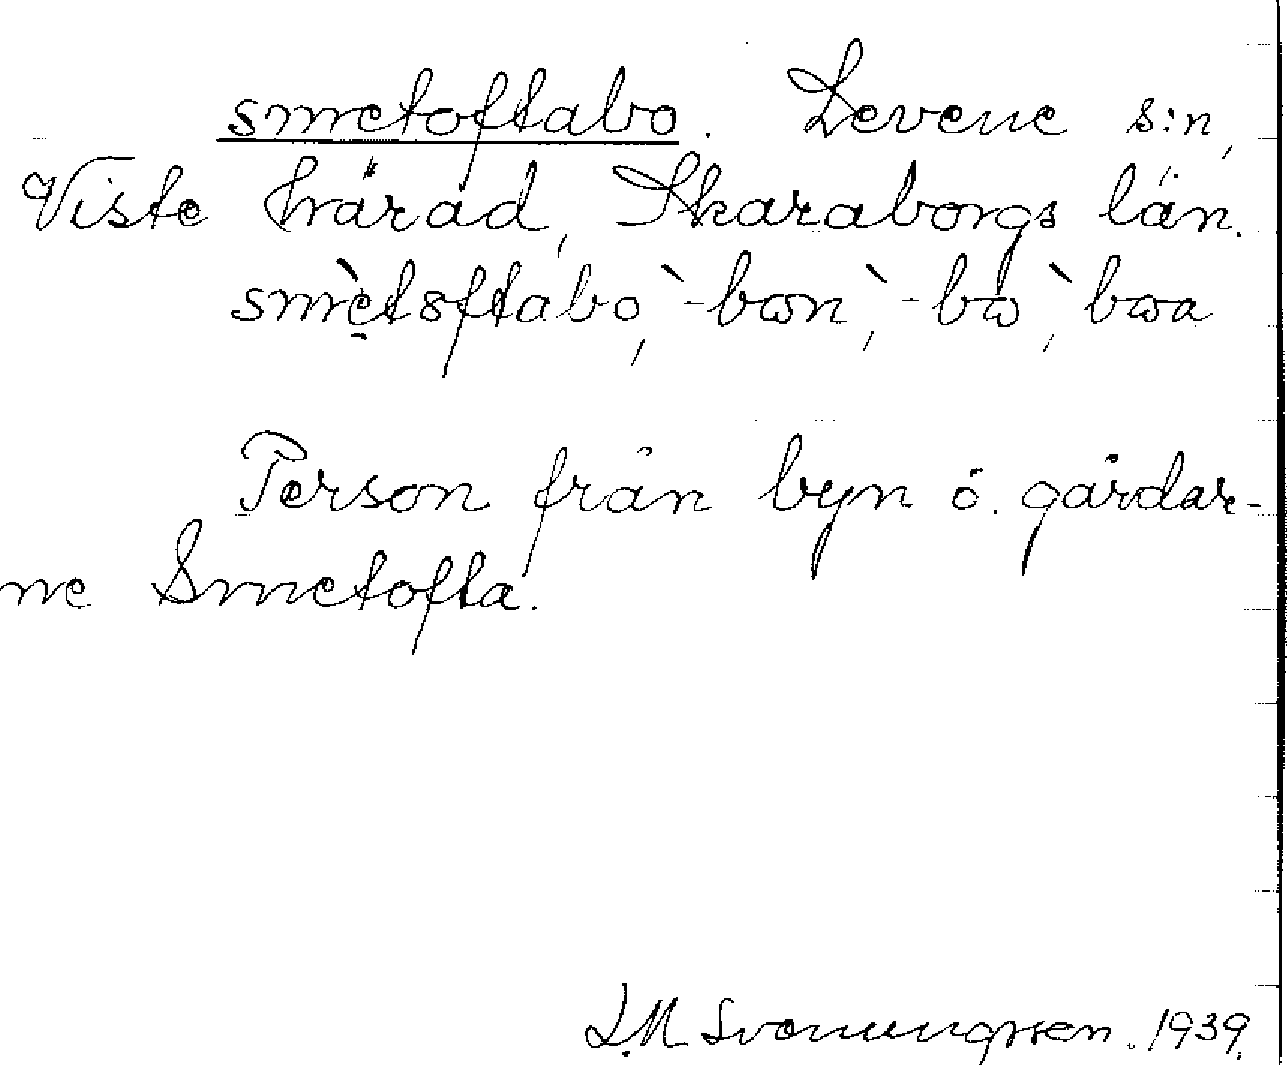 smetoftabo. Levene s:n,
Viste härad, Skaraborgs län.
smètoftabo, `-bωn, `-bω, `bωa
Person från byn o. gårdar-
ne Smetofta.
L.M Svenungsson. 1939.